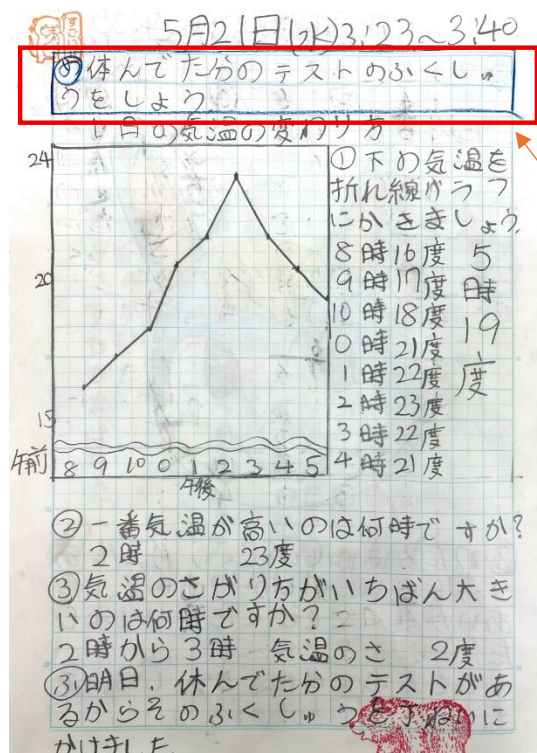 5月21日(水)3:23~3:40
め体んでた分のテストのふくしゅ
うをしよう
1日の気温の変わり方
24
20
15
午前 8 9 10 0 1 2 3 4 5
午後
①下の気温を
折れ線グラフ
にかきましょう。
8時16度
9時17度
10時18度
0時21度
1時22度
2時23度
3時22度
4時21度
5時19度
②一番気温が高いのは何時ですか?
2時 23度
③気温のさがり方がいちばん大き
いのは何時ですか?
2時から3時 気温のさ 2度
ふ明日、休んでた分のテストがあ
るからそのふくしゅうをていねいに
かけました